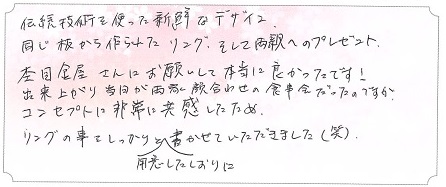 伝統技術を使った新鮮なデザイン、
同じ板から作られたリング、そして両親へのプレゼント、
杢目金屋さんにお願いして本当に良かったです!
出来上がり当日が両家顔合わせの食事会だったのですが、
コンセプトに非常に共感したため、
リングの事をしっかりと書かせていただきました(笑)。
用意したしおりに